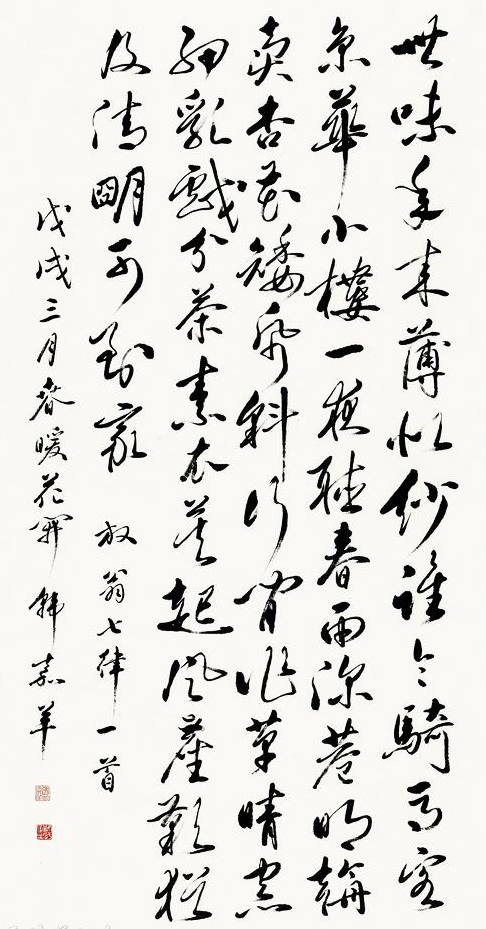 世味年来薄似紗誰令騎馬客
京華小樓一夜聽春雨深巷明朝
賣杏花矮紙斜行閒作草晴窗
細乳戲分茶素衣莫起風塵歎猶
及清明可到家 放翁七律一首
戊戌三月春暖花開 韓嘉羊